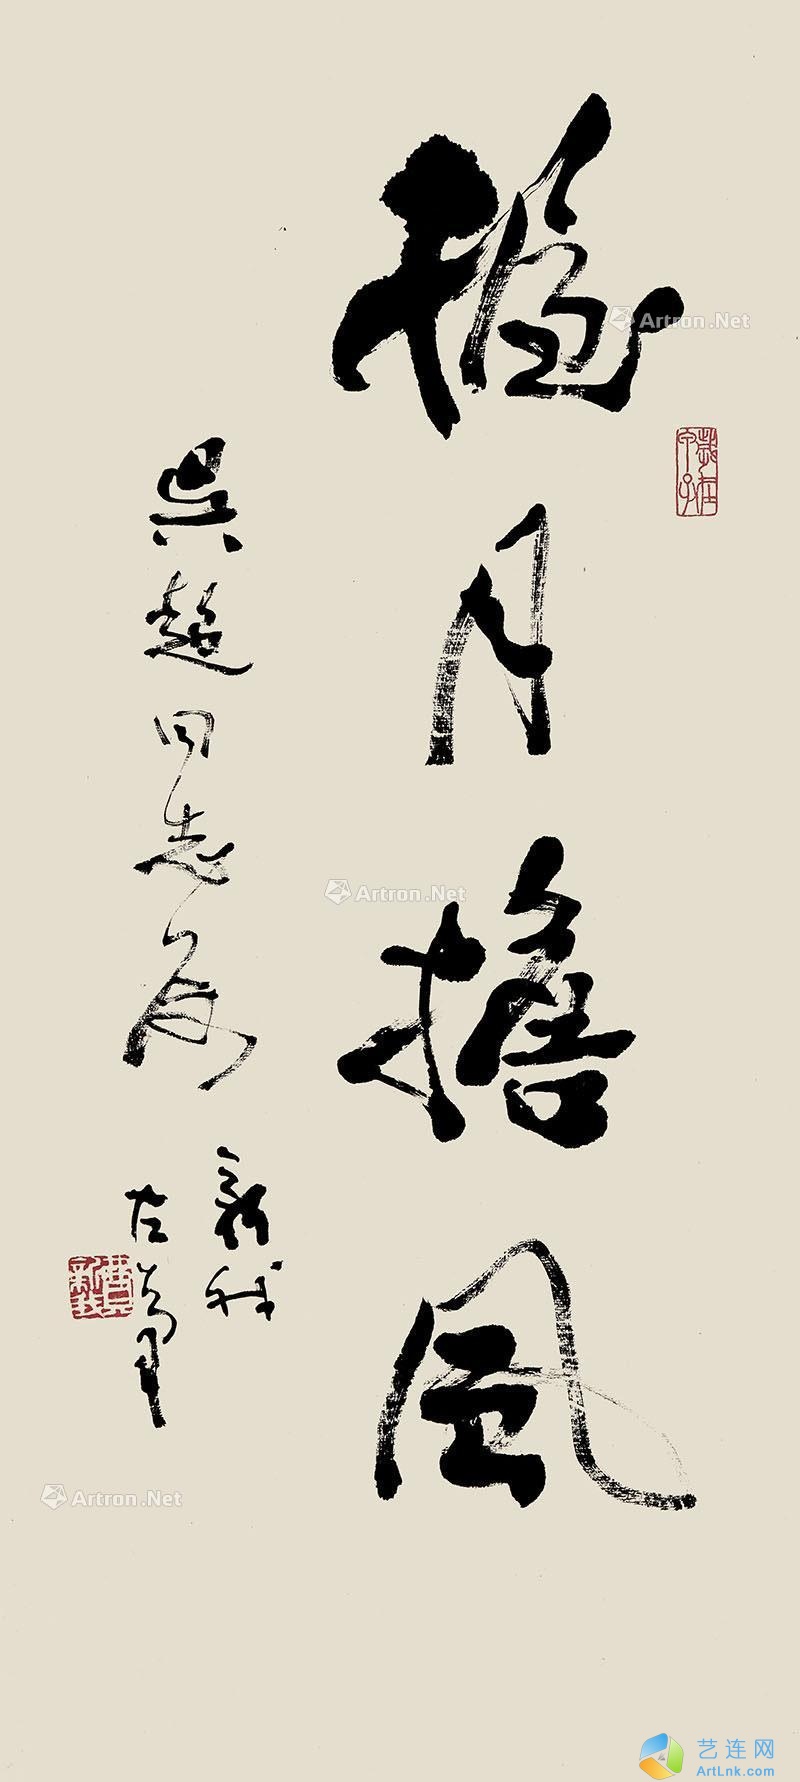 握月擔風
吴超同志属
新我
左筆
Artron.Net
Artron.Net
Artron.Net
艺连网
ArtLnk.com